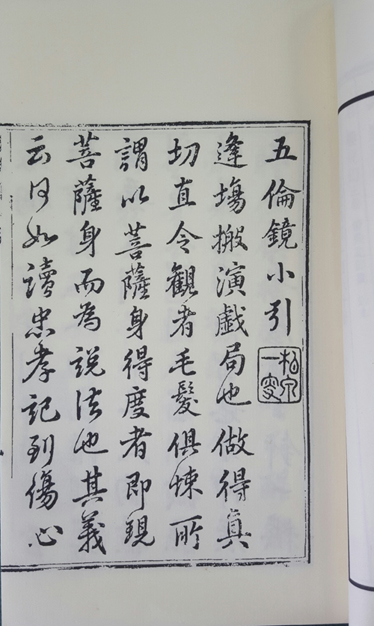 五倫鏡小引
逢塲搬演戯局也做得真
切直令觀者毛髪俱悚所
謂以菩薩身得度者即現
菩薩身而為說法也其義
云何如讀忠孝記到傷心